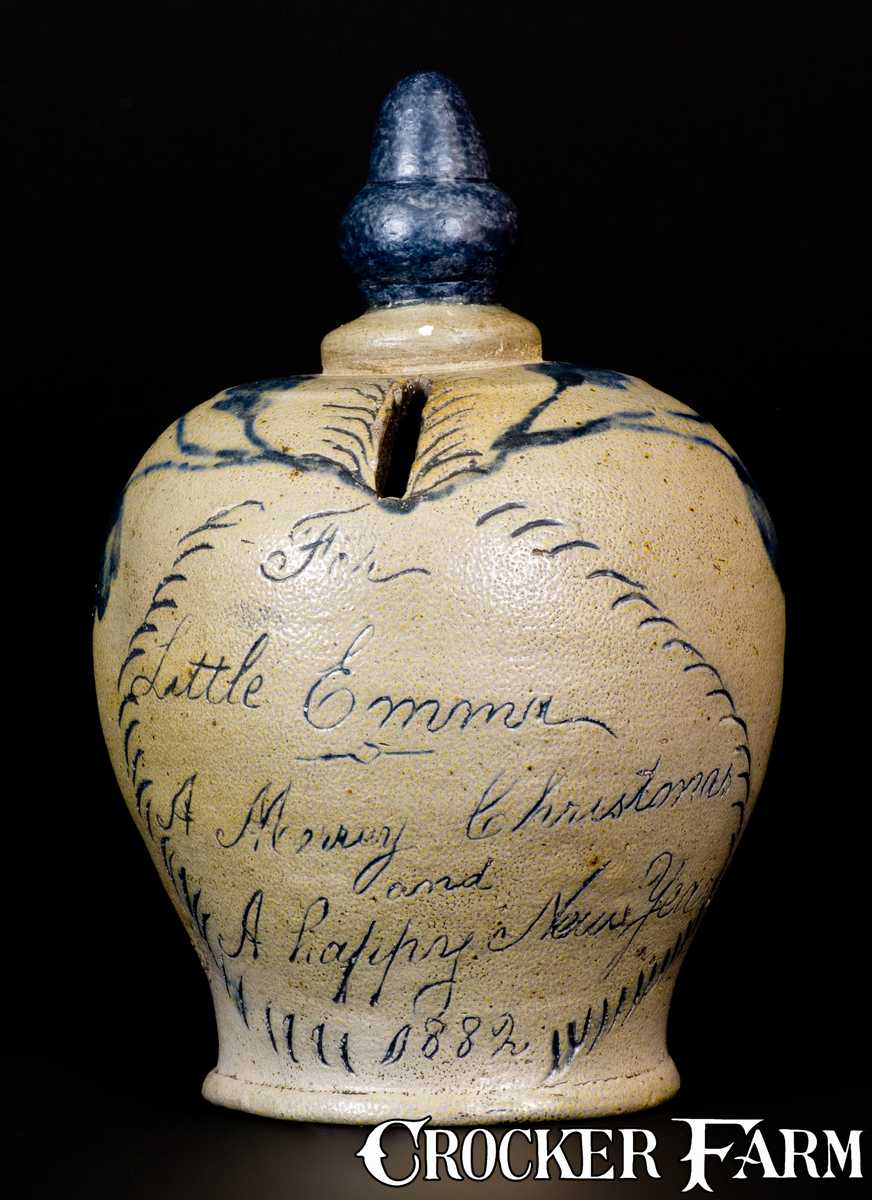 For
Little Emma
A Merry Christmas
and
A happy New Year
1882
CROCKER FARM